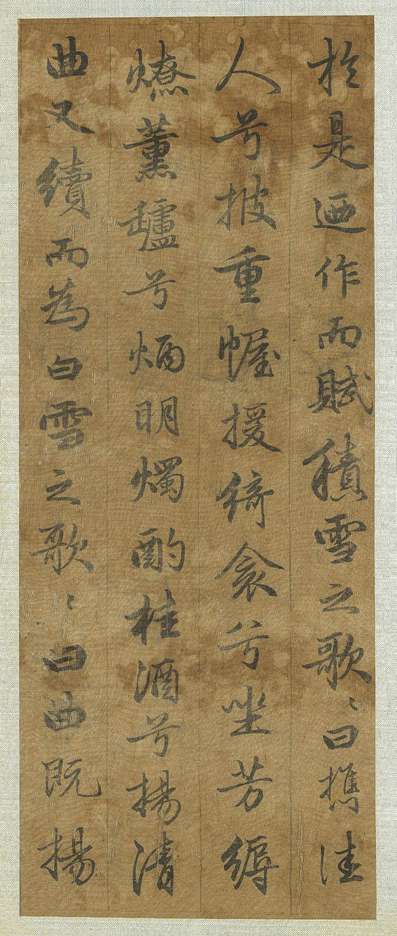 於是迺作而賦積雪之歌〻曰攜佳
人兮披重幄援綺衾兮坐芳縟
燎薰爐兮炳明燭酌桂酒兮揚清
曲又續而為白雪之歌〻曰曲既揚